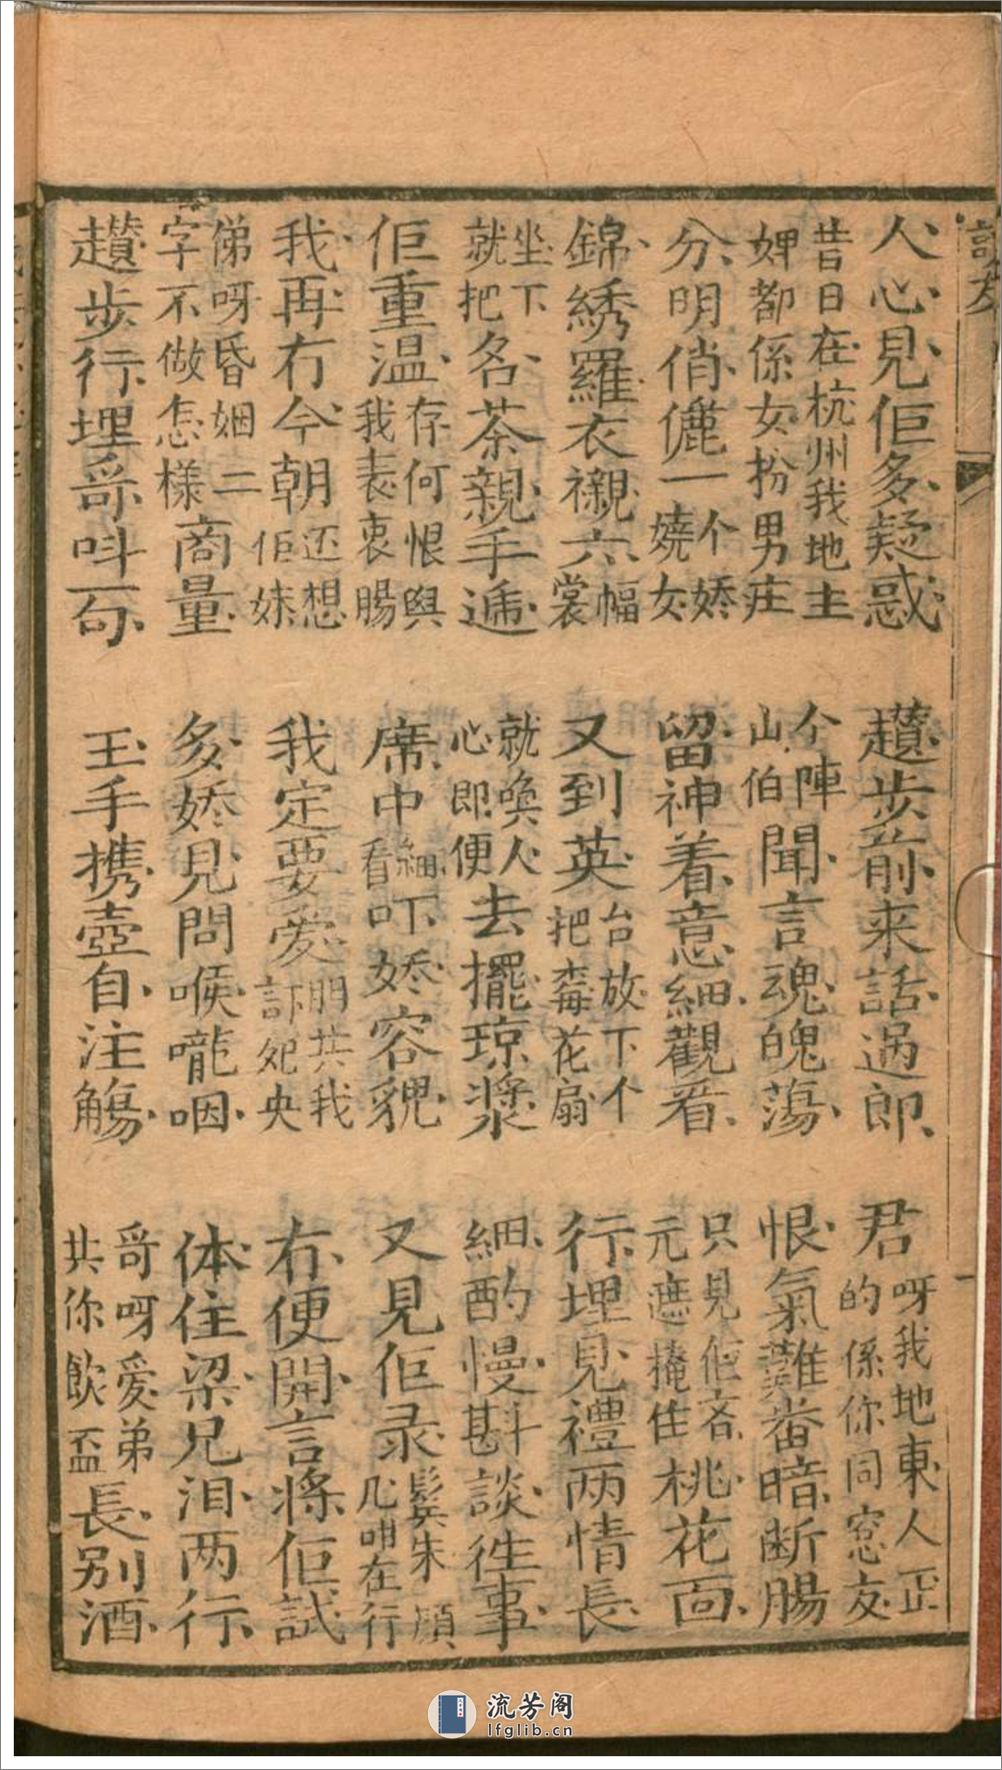 人心見佢多疑惑
趲步前来話過郎
君呀我地東人正的係你同窓友
昔日在杭州我地主婢都係女扮男庄
个陣山伯聞言魂魄蕩
恨氣難番暗断腸
分明俏儷一个娇嬈女
留神着意細觀看
只見佢吝元遮掩住桃花面
錦綉羅衣襯六幅裳
又到英台放下个把莓花扇
行埋見禮両情長
坐下就把名茶親手遞
就喚人心即便去擺琼漿
細酌慢斟談徃事
佢重温存何恨與我表衷腸
席中細看吓娇容貌
又見佢录鬓朱顔几咁在行
我再冇今朝还想佢妹
我定要爱門共我訂夗央
冇便開言將佢試
俤呀昏姻二字不做怎様商量
多娇見問喉嚨咽
体住梁兄泪両行
趲步行埋哥呌一句
玉手携壺自注觴
哥呀爱弟共你飲盃長别酒
流芳阁
lfglib.cn